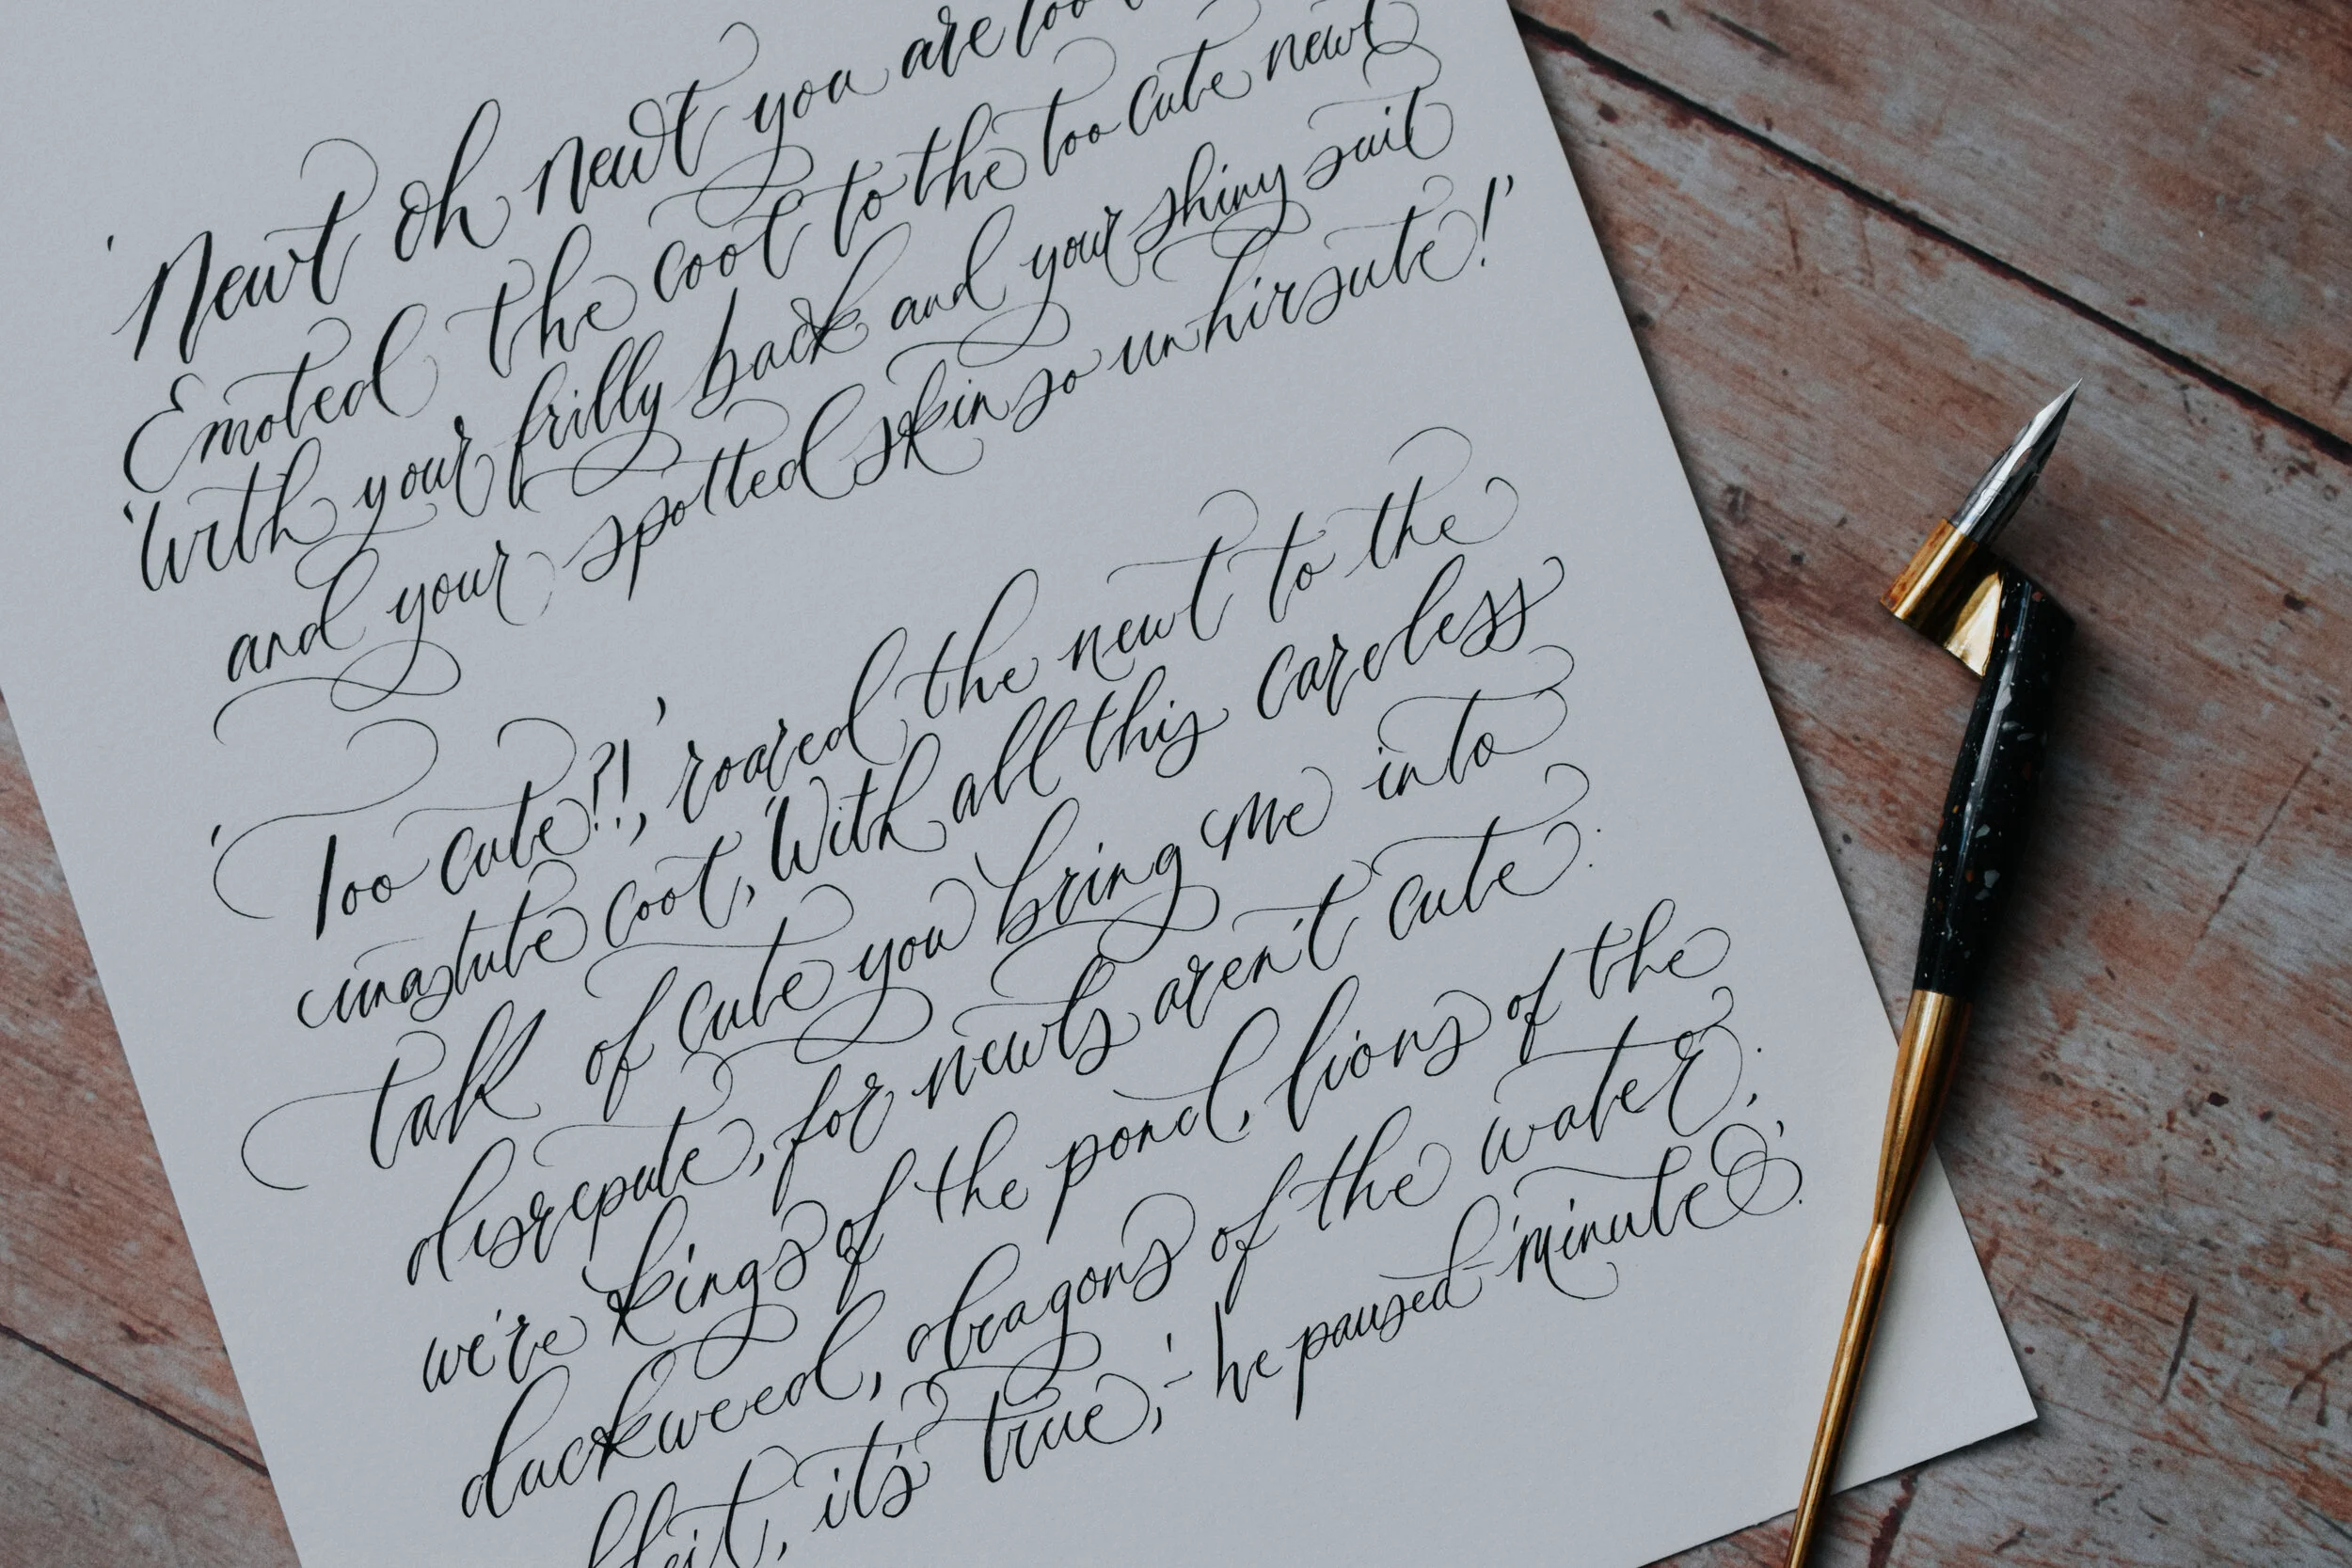 'Newt oh newt you are too
Emoted the coot to the too cute newt
'With your frilly back and your shiny suit
and your spotted skin so unhirsute!'
'Too cute?!,' roared the newt to the
unastute coot, 'With all this careless
talk of cute you bring me into
disrepute, for newts aren't cute.
we're kings of the pond, lions of the
duckweed, dragons of the water;
albeit, it's true,' - he paused - 'minute'.